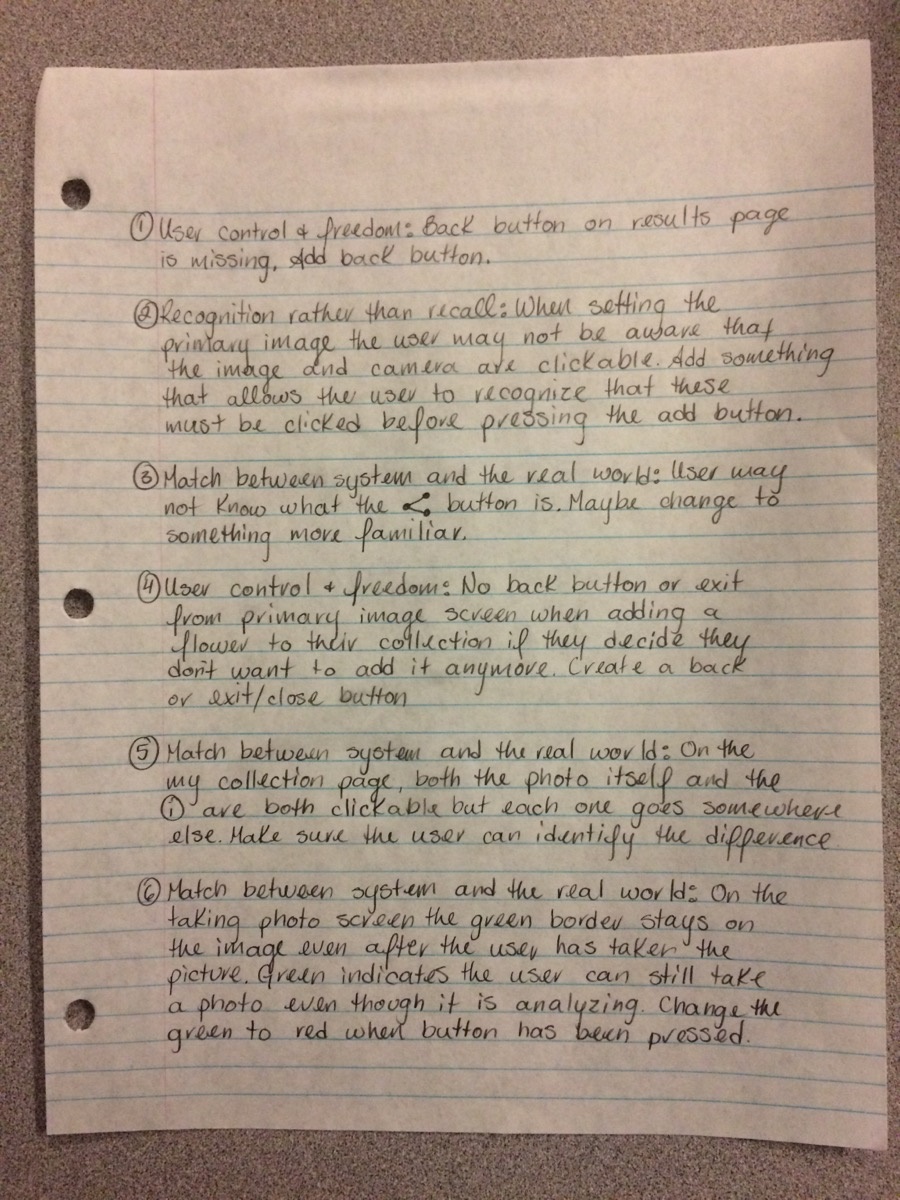 ① User control & freedom: Back button on results page
is missing, Add back button.
② Recognition rather than recall: When setting the
primary image the user may not be aware that
the image and camera are clickable. Add something
that allows the user to recognize that these
must be clicked before pressing the add button.
③ Match between system and the real world: User may
not know what the < button is. Maybe change to
something more familiar.
④ User control & freedom: No back button or exit
from primary image screen when adding a
flower to their collection if they decide they
don't want to add it anymore. Create a back
or exit/close button
⑤ Match between system and the real world: On the
my collection page, both the photo itself and the
ⓘ are both clickable but each one goes somewhere
else. Make sure the user can identify the difference
⑥ Match between system and the real world: On the
taking photo screen the green border stays on
the image even after the user has taken the
picture. Green indicates the user can still take
a photo even though it is analyzing. Change the
green to red when button has been pressed.